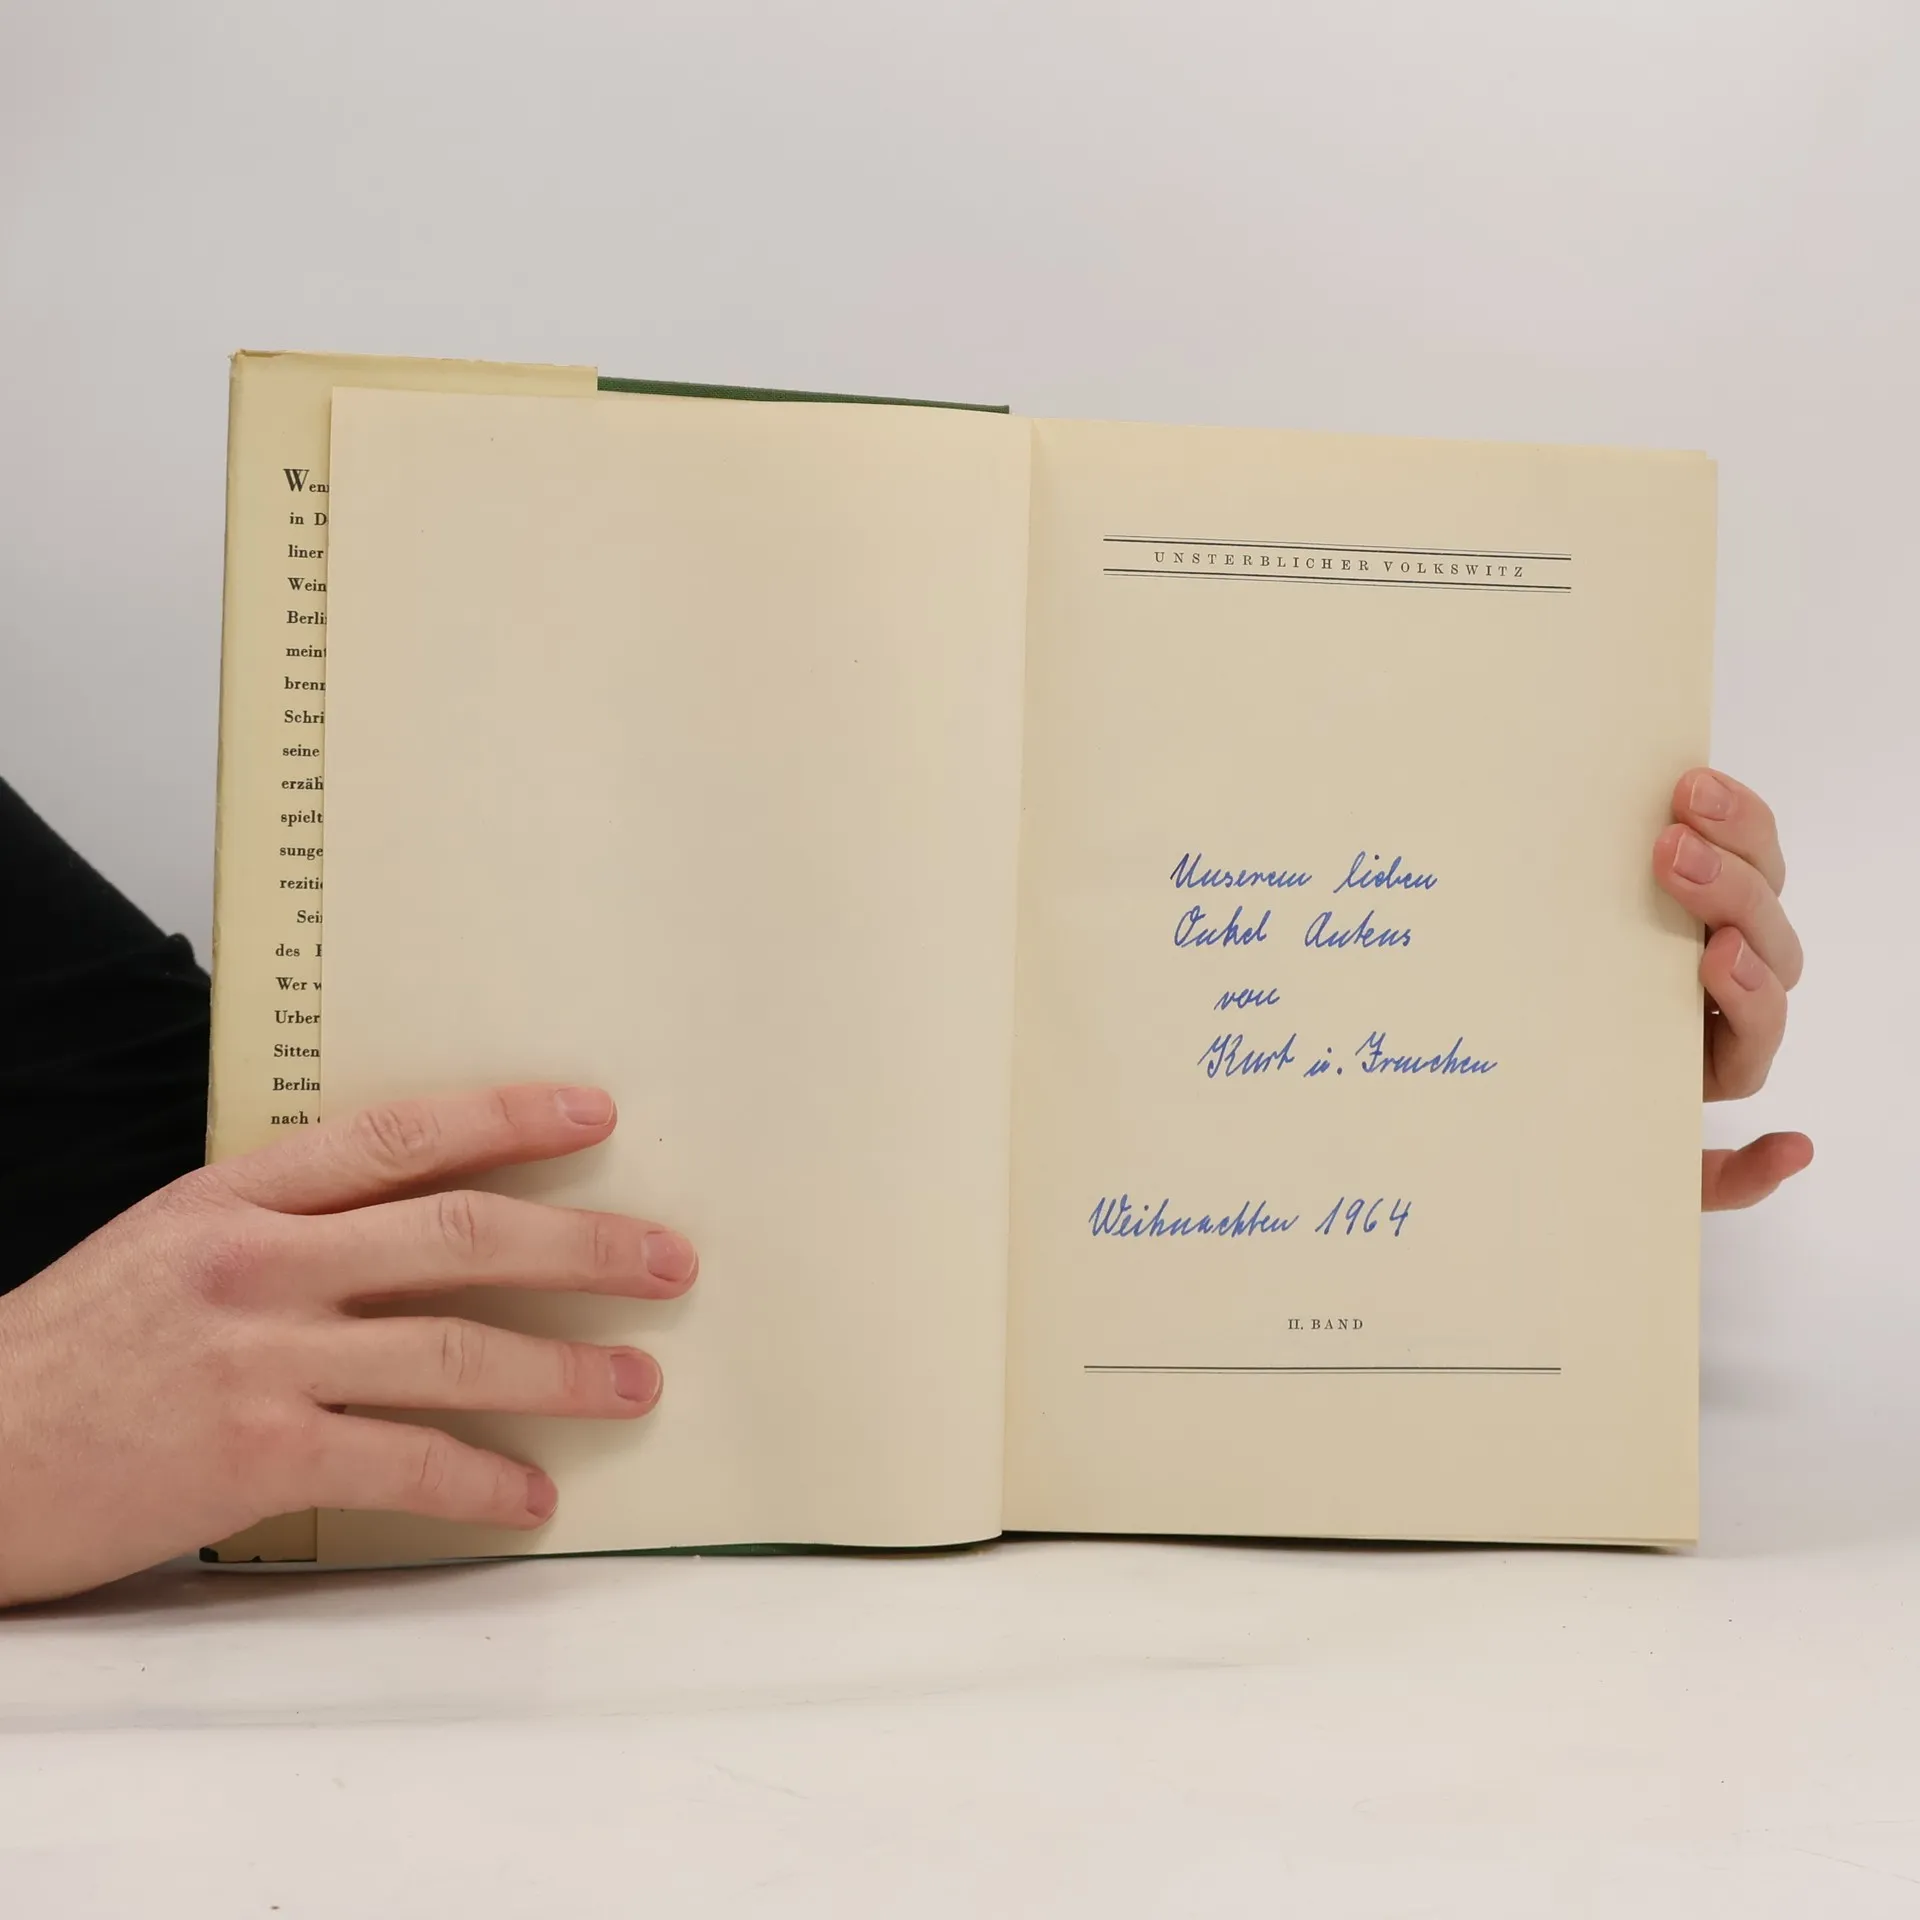 Wen
in D
liner
Wein
Berli
meint
brenn
Schri
seine
erzäh
spielt
sunge
reziti
Sei
des
Wer w
Urber
Sitten
Berlin
nach
UNSTERBLICHER VOLKSWITZ
Unserem lieben
Onkel Antens
von
Kurt u. Irmchen
Weihnachten 1964
II. BAND